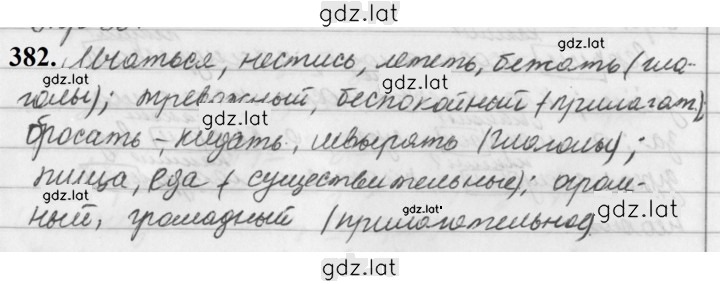 gdz.lat
382. Мчаться, нестись, лететь, бежать (гла-
gdz.lat
gdz.lat
голы); тревожный, беспокойный (прилагат.);
бросать – кидать, швырять (глаголы);
gdz.lat
gdz.lat
пища, еда (существительные); огром-
gdz.lat
gdz.lat
ный, громадный (прилагательное)
gdz.lat